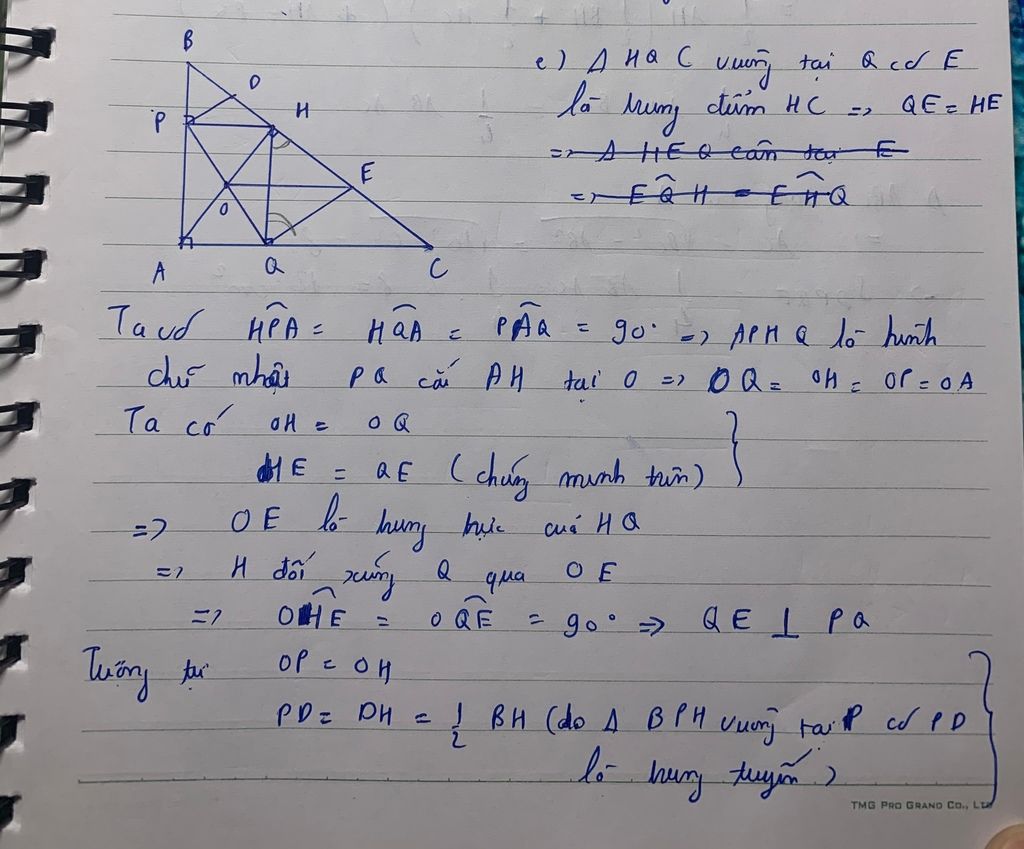 B
D
P
H
E
O
A
Q
C
e) Δ HQC vuông tại Q có E
là trung điểm HC => QE = HE
=> Δ HEQ cân tại E
=> EQH = EHQ
Ta có HPA = HQA = PAQ = 90° => APHQ là hình
chữ nhật PQ cắt AH tại O => OQ = OH = OP = OA
Ta có OH = OQ
HE = QE (chứng minh trên)
=> OE là trung trực của HQ
=> H đối xứng Q qua OE
=> OHE = OQE = 90° => QE ⊥ PQ
Tương tự OP = OH
PD = DH = 1/2 BH (do Δ BPH vuông tại P có PD
là trung tuyến)
TMG PRO GRAND CO., LTD